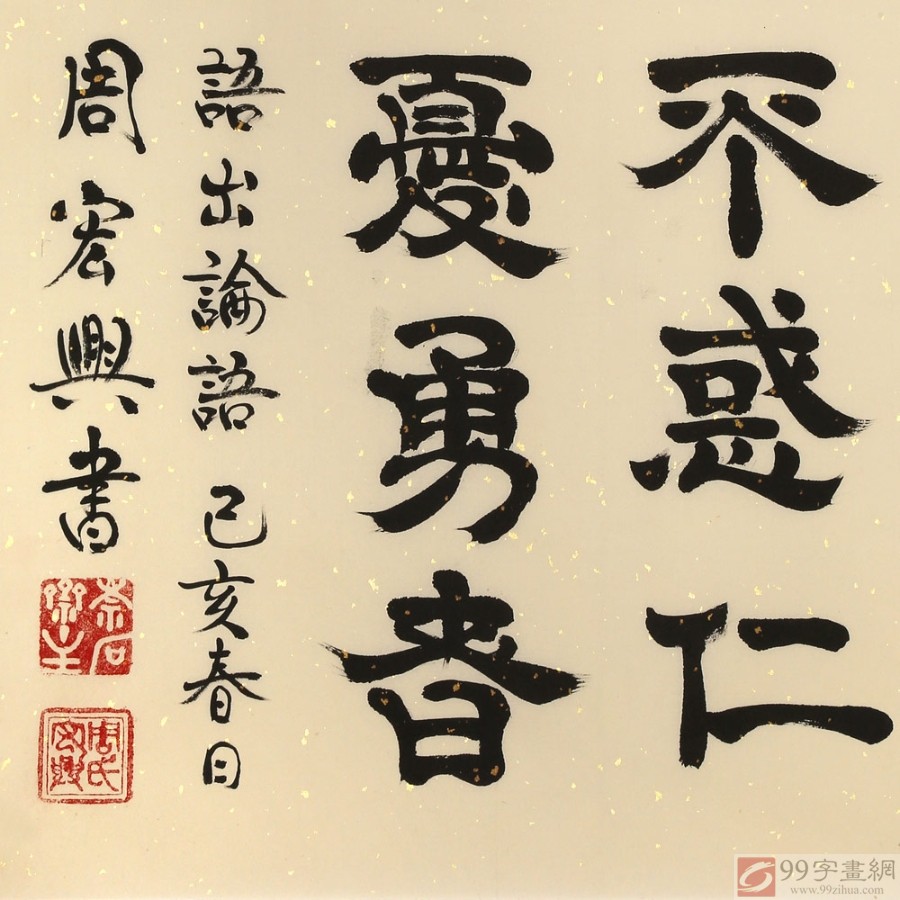 不惑仁
憂勇者
語出論語 己亥春日
周宏興書
周氏宏興
99字畫網
www.99zihua.com